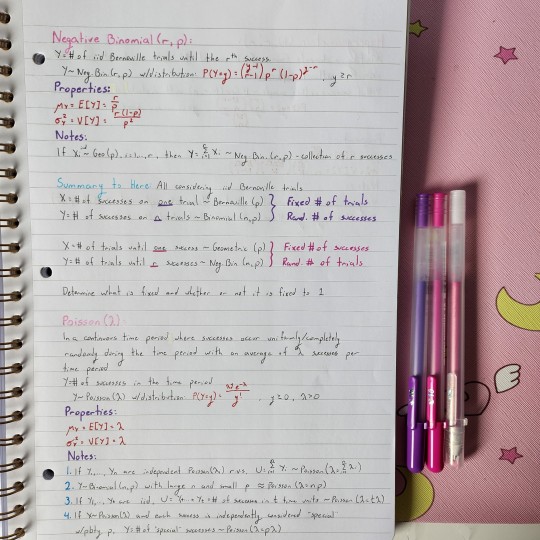 Negative Binomial (r, p):
Y = # of iid Bernoulli trials until the rth success
Y ~ Neg. Bin. (r, p) w/ distribution: P(Y=y) = (y-1 r-1) p^r (1-p)^y-r , y ≥ r
Properties:
μY = E[Y] = r/p
σY² = V[Y] = r(1-p)/p²
Notes:
If Xi iid ~ Geo(p), i=1,...,r, then Y = Σ Xi ~ Neg. Bin. (r, p) - collection of r successes
Summary to Here: All considering iid Bernoulli trials
X = # of successes on one trial ~ Bernoulli (p) } Fixed # of trials
Y = # of successes on n trials ~ Binomial (n, p) } Rand. # of successes
X = # of trials until one success ~ Geometric (p) } Fixed # of successes
Y = # of trials until r successes ~ Neg. Bin. } Rand. # of trials
Determine what is fixed and whether or not it is fixed to 1
Poisson (λ):
In a continuous time period where successes occur uniformly/completely
randomly during the time period with an average of λ successes per
time period
Y = # of successes in the time period
Y ~ Poisson (λ) w/ distribution: P(Y=y) = λ^y e^-λ / y! , y ≥ 0, λ > 0
Properties:
μY = E[Y] = λ
σY² = V[Y] = λ
Notes:
1. If Y1, ..., Yn are independent Poisson(λi) rvs, U = Σ Yi ~ Poisson (λ = Σ λi)
2. Y ~ Binomial (n, p) with large n and small p ≈ Poisson (λ = n·p)
3. If Y1, ..., Yt are iid, U = Y1 + ... + Yt = # of success in t time units ~ Poisson (λ = tλ)
4. If X ~ Poisson(λ) and each success is independently considered "special"
w/ pbty p, Y = # of "special" successes ~ Poisson (λ = pλ)